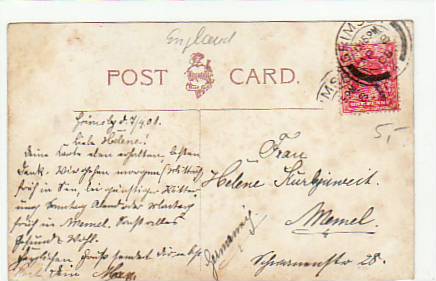 England
POST CARD.
GRIMSBY
5,-
Grimsby d. 7/9 08.
Liebe Helene!
Deine Karte eben erhalten, besten
Dank. Wir gehen morgen Mittag
früh in See, bei günstiger
Sonntag Abend oder Montag
früh in Memel. Sonst alles
Gesund & Wohl.
Herzlichen Gruß sendet
Dein Max
Frau
Helene Kurschinweit.
Memel.
28.
Germany